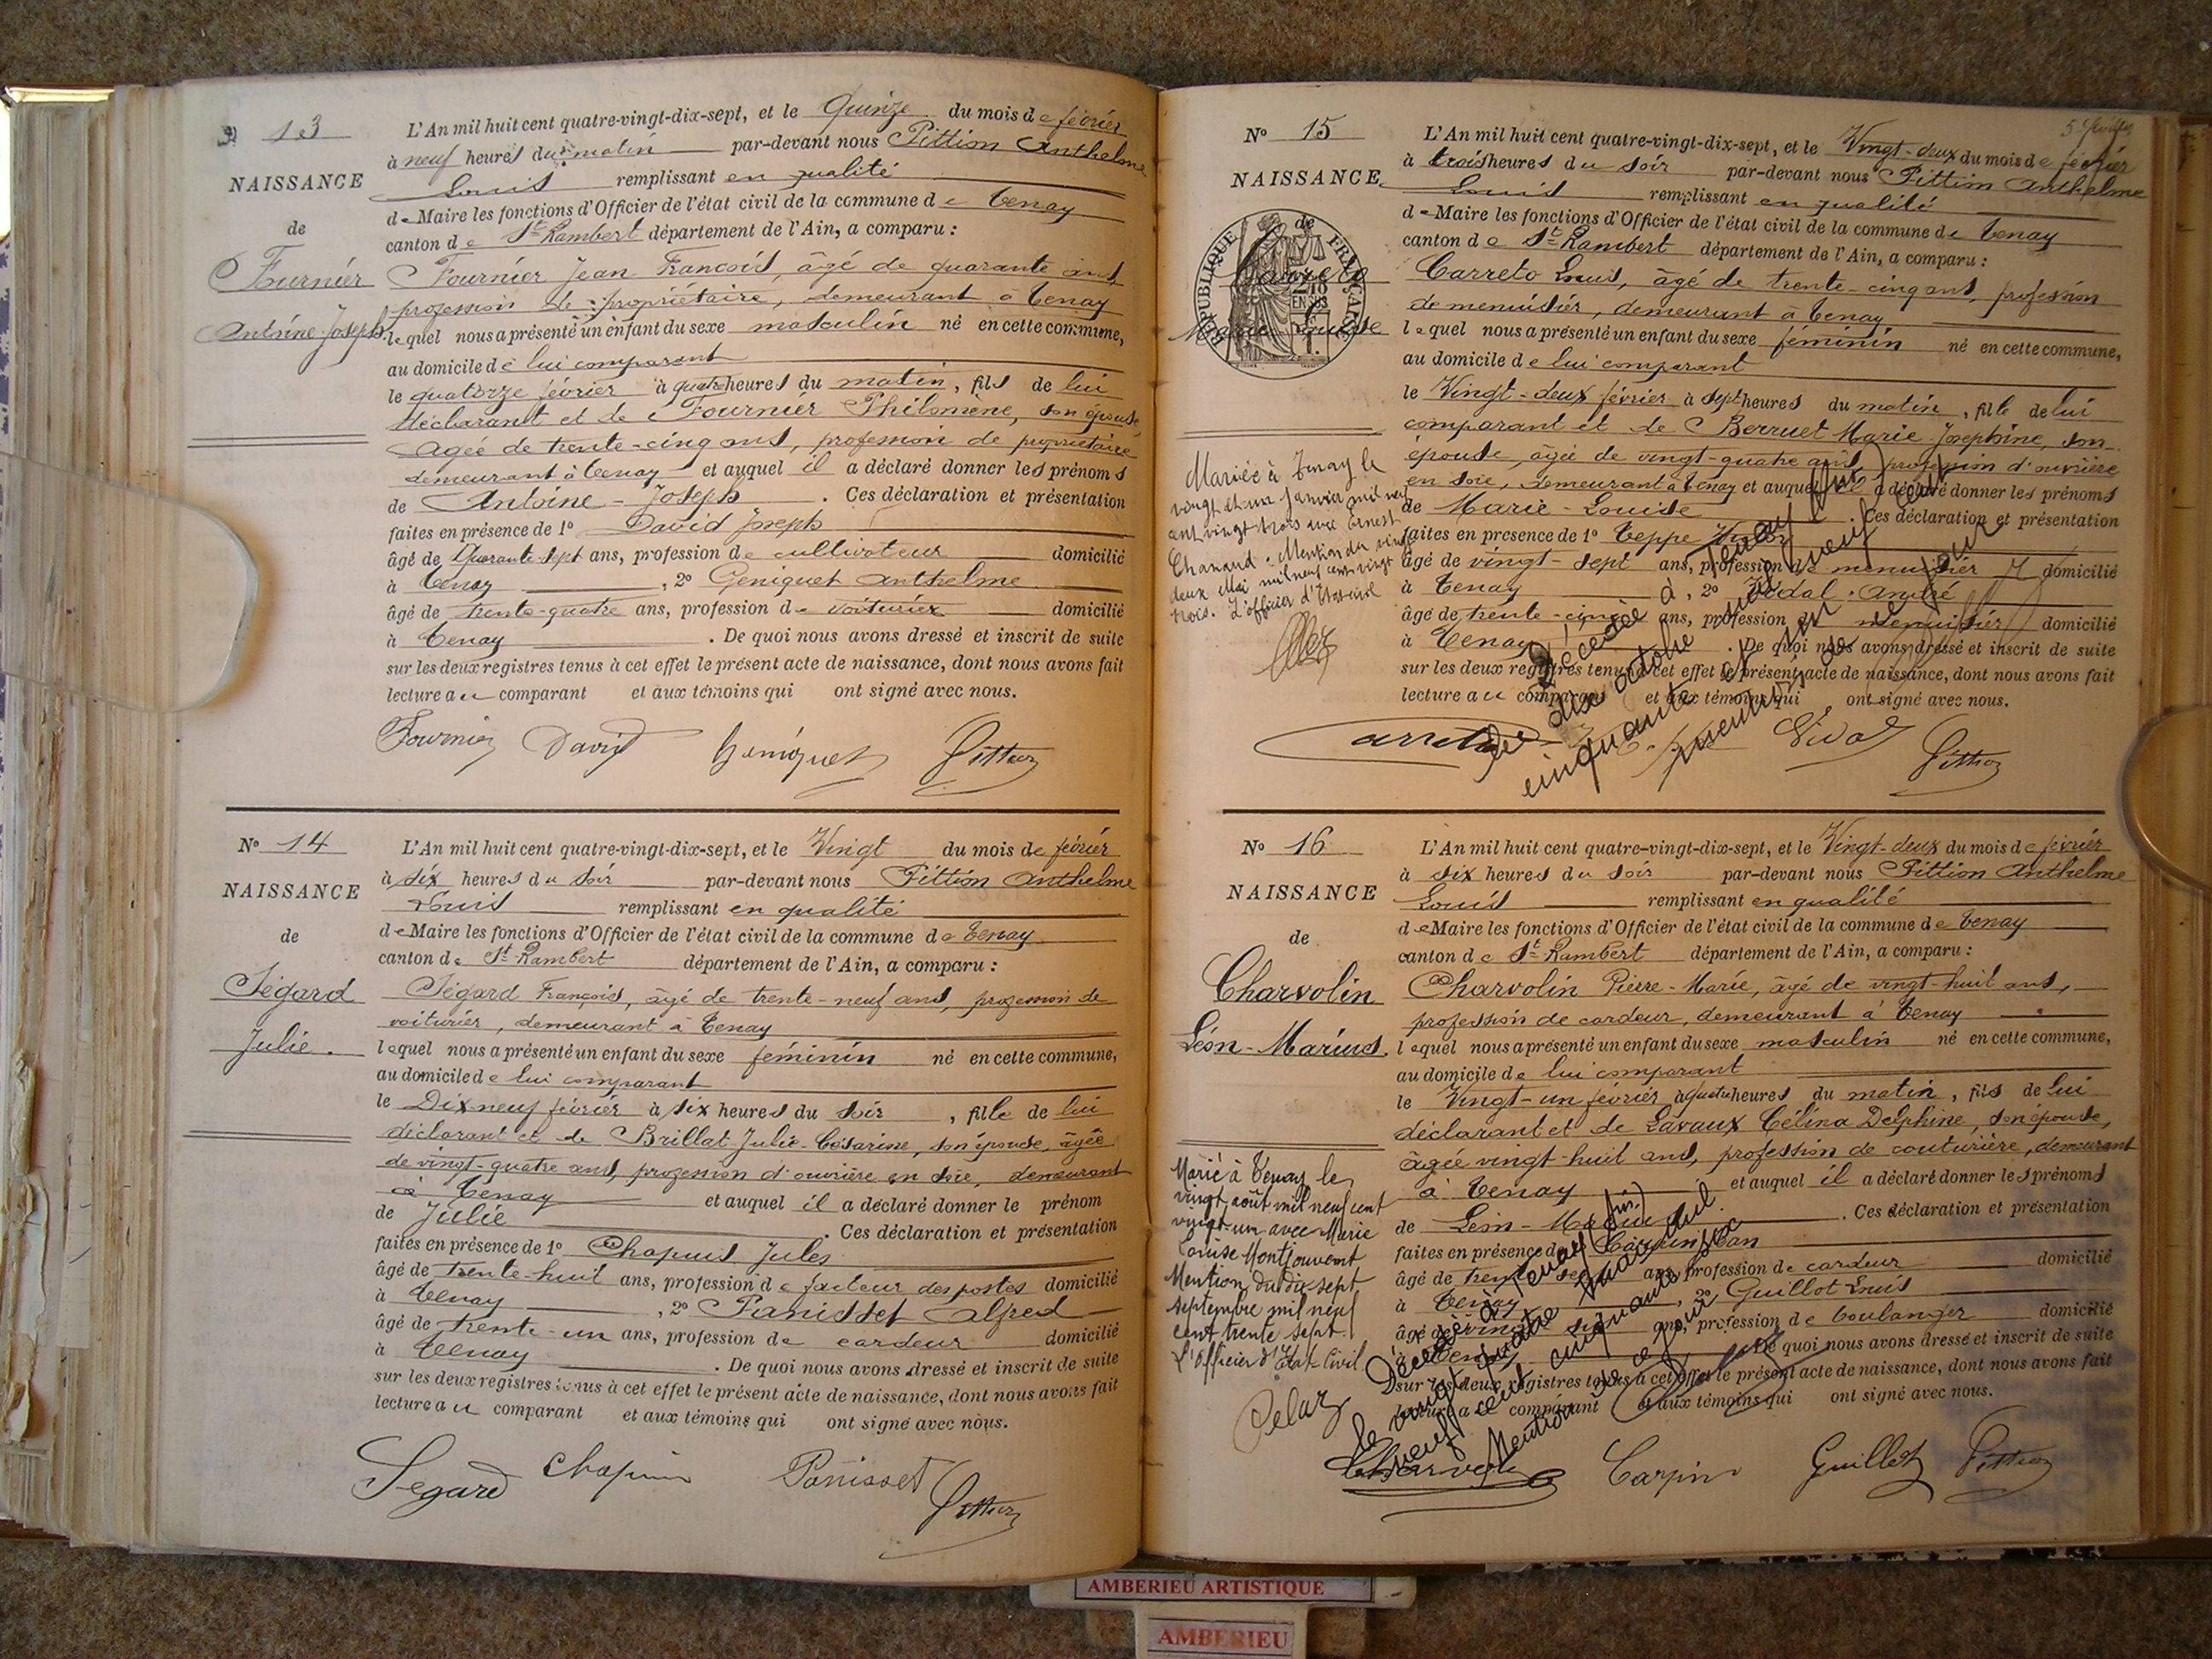 N° 13
NAISSANCE
de
Fournier
Antoine-Joseph
L'An mil huit cent quatre-vingt-dix-sept, et le Quinze du mois de février
à neuf heures du matin par-devant nous Pittion Anthelme
Louis remplissant en qualité
de Maire les fonctions d'Officier de l'état civil de la commune de Tenay
canton de St Rambert département de l'Ain, a comparu :
Fournier Jean François, âgé de quarante ans,
profession de propriétaire, demeurant à Tenay
lequel nous a présenté un enfant du sexe masculin né en cette commune,
au domicile de lui comparant
le quatorze février à quatre heures du matin, fils de lui
déclarant et de Fournier Philomène, son épouse
âgée de trente-cinq ans, profession de propriétaire
demeurant à Tenay et auquel il a déclaré donner les prénoms
de Antoine-Joseph. Ces déclaration et présentation
faites en présence de 1° David Joseph
âgé de Quarante-sept ans, profession de cultivateur domicilié
à Tenay, 2° Geniquet Anthelme
âgé de trente-quatre ans, profession de voiturier domicilié
à Tenay. De quoi nous avons dressé et inscrit de suite
sur les deux registres tenus à cet effet le présent acte de naissance, dont nous avons fait
lecture au comparant et aux témoins qui ont signé avec nous.
Fournier David Geniquet Pittion
N° 14
NAISSANCE
de
Ségard
Julie.
L'An mil huit cent quatre-vingt-dix-sept, et le Vingt du mois de février
à six heures du soir par-devant nous Pittion Anthelme
Louis remplissant en qualité
de Maire les fonctions d'Officier de l'état civil de la commune de Tenay
canton de St Rambert département de l'Ain, a comparu :
Ségard François, âgé de trente-neuf ans, profession de
voiturier, demeurant à Tenay
lequel nous a présenté un enfant du sexe féminin né en cette commune,
au domicile de lui comparant
le Dix neuf février à six heures du soir, fille de lui
déclarant et de Brillat Julie-Césarine, son épouse, âgée
de vingt-quatre ans, profession d'ouvrière en soie, demeurant
à Tenay et auquel il a déclaré donner le prénom
de Julie. Ces déclaration et présentation
faites en présence de 1° Chapuis Jules
âgé de trente-huit ans, profession de facteur des postes domicilié
à Tenay, 2° Panisset Alfred
âgé de trente-un ans, profession de cardeur domicilié
à Tenay. De quoi nous avons dressé et inscrit de suite
sur les deux registres tenus à cet effet le présent acte de naissance, dont nous avons fait
lecture au comparant et aux témoins qui ont signé avec nous.
Segard Chapuis Panisset Pittion
N° 15
NAISSANCE
de
RÉPUBLIQUE FRANÇAISE
Carreto
Marie Louise
L'An mil huit cent quatre-vingt-dix-sept, et le Vingt-deux du mois de février
à trois heures du soir par-devant nous Pittion Anthelme
Louis remplissant en qualité
de Maire les fonctions d'Officier de l'état civil de la commune de Tenay
canton de St Rambert département de l'Ain, a comparu :
Carreto Louis, âgé de trente-cinq ans, profession
de menuisier, demeurant à Tenay
lequel nous a présenté un enfant du sexe féminin né en cette commune,
au domicile de lui comparant
le Vingt-deux février à sept heures du matin, fille de lui
comparant et de Berruet Marie-Joséphine, son
épouse, âgée de vingt-quatre ans, profession d'ouvrière
en soie, demeurant à Tenay et auquel il a déclaré donner les prénoms
de Marie-Louise. Ces déclaration et présentation
faites en présence de 1° Teppe
âgé de vingt-sept ans, profession de menuisier domicilié
à Tenay, 2° Vidal André
âgé de trente-cinq ans, profession de menuisier domicilié
à Tenay. De quoi nous avons dressé et inscrit de suite
sur les deux registres tenus à cet effet le présent acte de naissance, dont nous avons fait
lecture au comparant et aux témoins qui ont signé avec nous.
Mariée à Tenay le
vingt et un janvier mil neuf
cent vingt trois avec Ernest
Chanaud. Mention du vingt
deux Mai mil neuf cent vingt
trois. L'officier d'Etat civil
Décédée à Tenay (Ain)
le dix octobre mil neuf cent
cinquante
mention de ce jour
Carreto Vidal Pittion
N° 16
NAISSANCE
de
Charvolin
Léon-Marius.
L'An mil huit cent quatre-vingt-dix-sept, et le Vingt-deux du mois de février
à six heures du soir par-devant nous Pittion Anthelme
Louis remplissant en qualité
de Maire les fonctions d'Officier de l'état civil de la commune de Tenay
canton de St Rambert département de l'Ain, a comparu :
Charvolin Pierre-Marie, âgé de vingt-huit ans,
profession de cardeur, demeurant à Tenay
lequel nous a présenté un enfant du sexe masculin né en cette commune,
au domicile de lui comparant
le Vingt-un février à quatre heures du matin, fils de lui
déclarant et de Lavaux Célina Delphine, son épouse,
âgée vingt-huit ans, profession de couturière, demeurant
à Tenay et auquel il a déclaré donner les prénoms
de Léon-Marius. Ces déclaration et présentation
faites en présence de
âgé de trente sept ans, profession de cardeur domicilié
à Tenay, 2° Guillot Louis
âgé de vingt ans, profession de boulanger domicilié
à Tenay. De quoi nous avons dressé et inscrit de suite
sur les deux registres tenus à cet effet le présent acte de naissance, dont nous avons fait
lecture au comparant et aux témoins qui ont signé avec nous.
Marié à Tenay le
vingt août mil neuf cent
vingt-un avec Marie
Louise Montjouvent
Mention du dix sept
septembre mil neuf
cent trente sept.
L'Officier d'Etat Civil
Pelaz
Décédé à Tenay (Ain)
le vingt quatre mars mil
neuf cent cinquante six
Mention de ce jour
Charvolin Carpin Guillot Pittion
AMBERIEU ARTISTIQUE
AMBERIEU